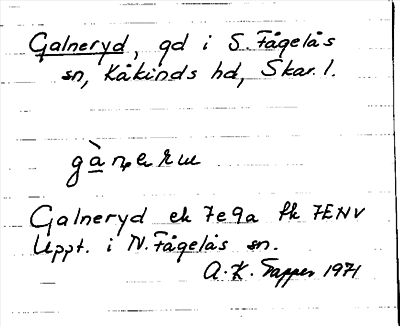 Galneryd, gd i S. Fågelås
sn, Kåkinds hd, Skar. l.
Galneryd ek 7e9a fk 7ENV
Uppt. i N. Fågelås sn.
A. K. Tapper 1971